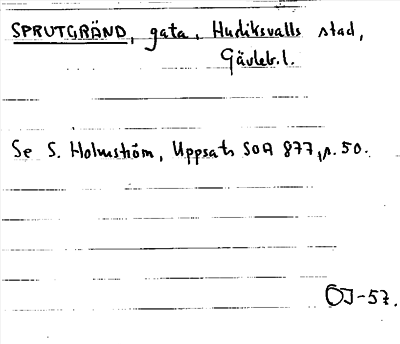 SPRUTGRÄND, gata, Hudiksvalls stad,
Gävleb.l.
Se S. Holmström, Uppsats SOA 877, s. 50.
ÖJ-57.